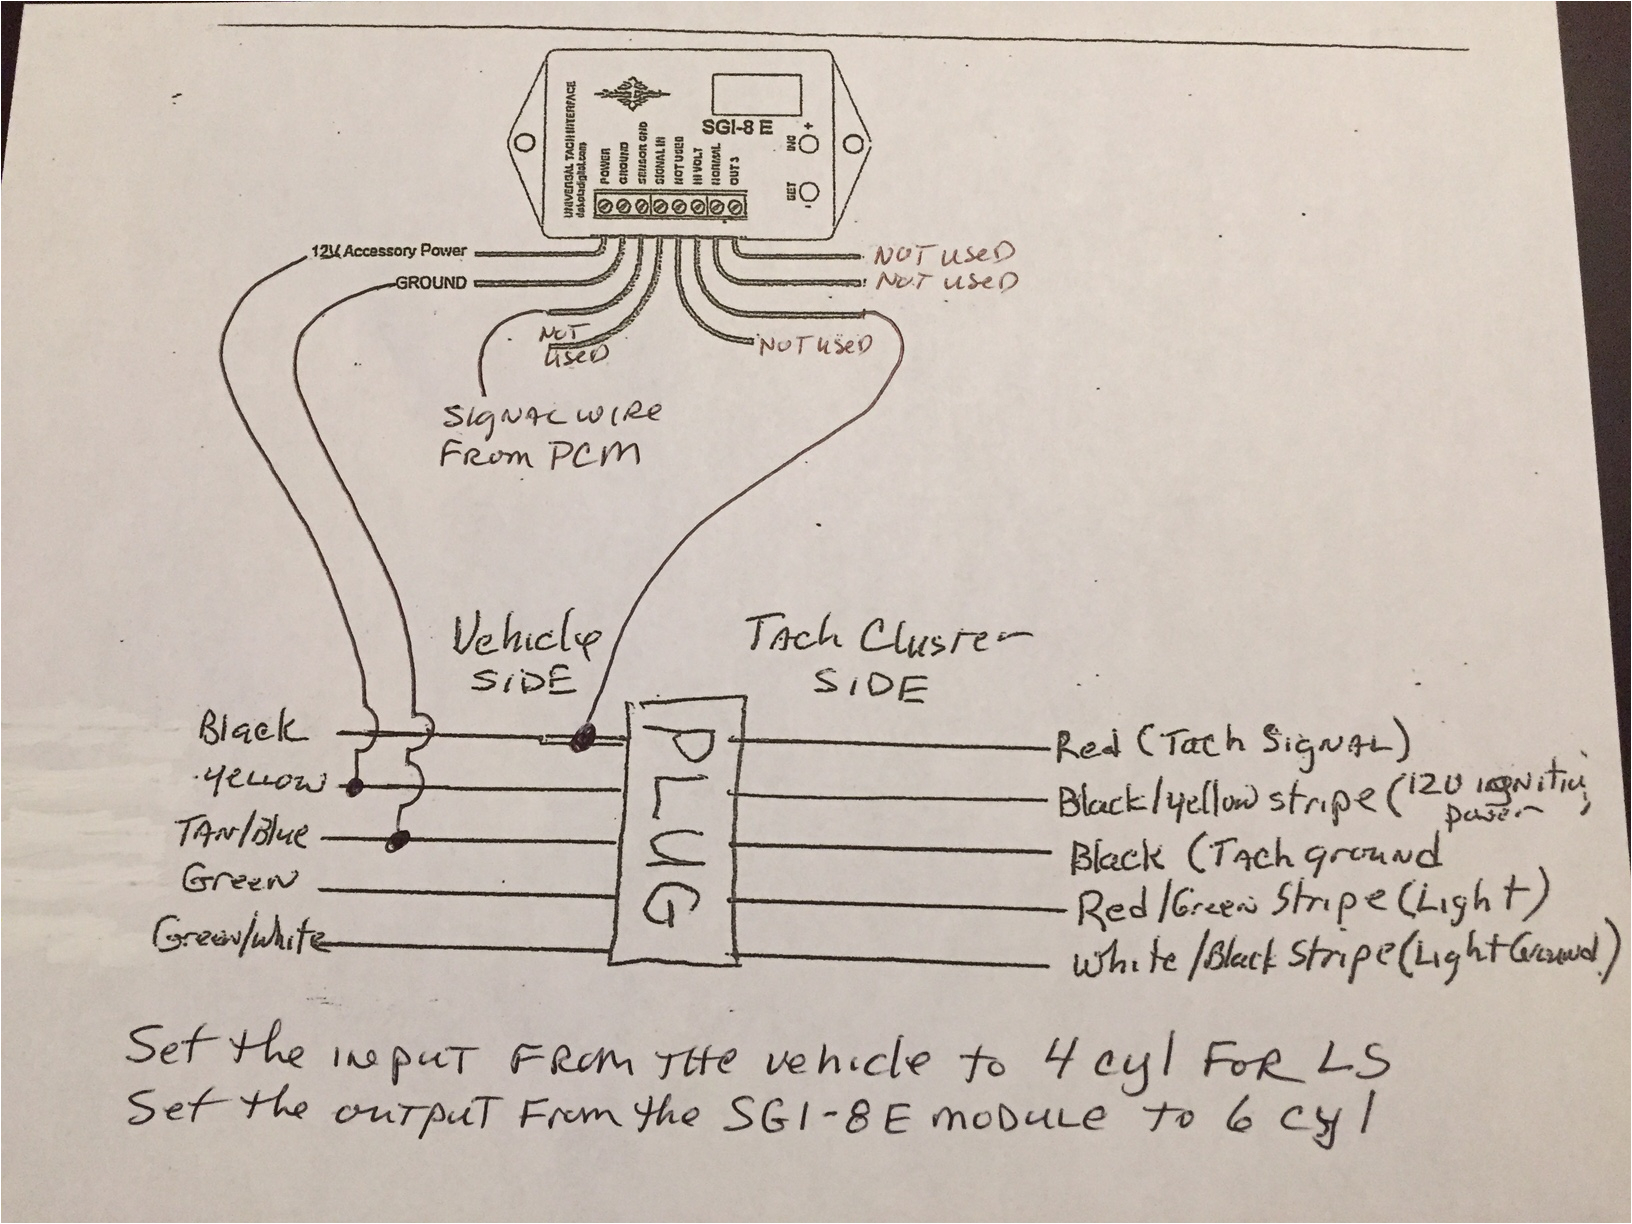 UNIVERSAL TACH INTERFACE
dakotadigital.com
SGI-8 E
POWER
GROUND
SENSOR GND
SIGNAL IN
NOT USED
HI VOLT
NORMAL
OUT 3
INC +
SET -
12V Accessory Power
GROUND
NOT USED
NOT USED
NOT
USED
NOT USED
SIGNAL WIRE
FROM PCM
Vehicle
SIDE
TACH Cluster
SIDE
PLUG
Black
Yellow
TAN/Blue
Green
Green/White
Red (Tach SIGNAL)
Black/Yellow stripe (12V ignition
power
Black (TACH ground
Red/Green Stripe (Light)
White/Black Stripe (Light Ground)
Set the INPUT FROM THE vehicle to 4 cyl FOR LS
Set the OUTPUT From the SGI-8E MODULE to 6 cyl